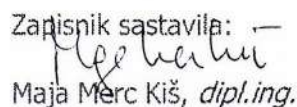 Zapisnik sastavila:
Maja Merc Kiš, dipl.ing.